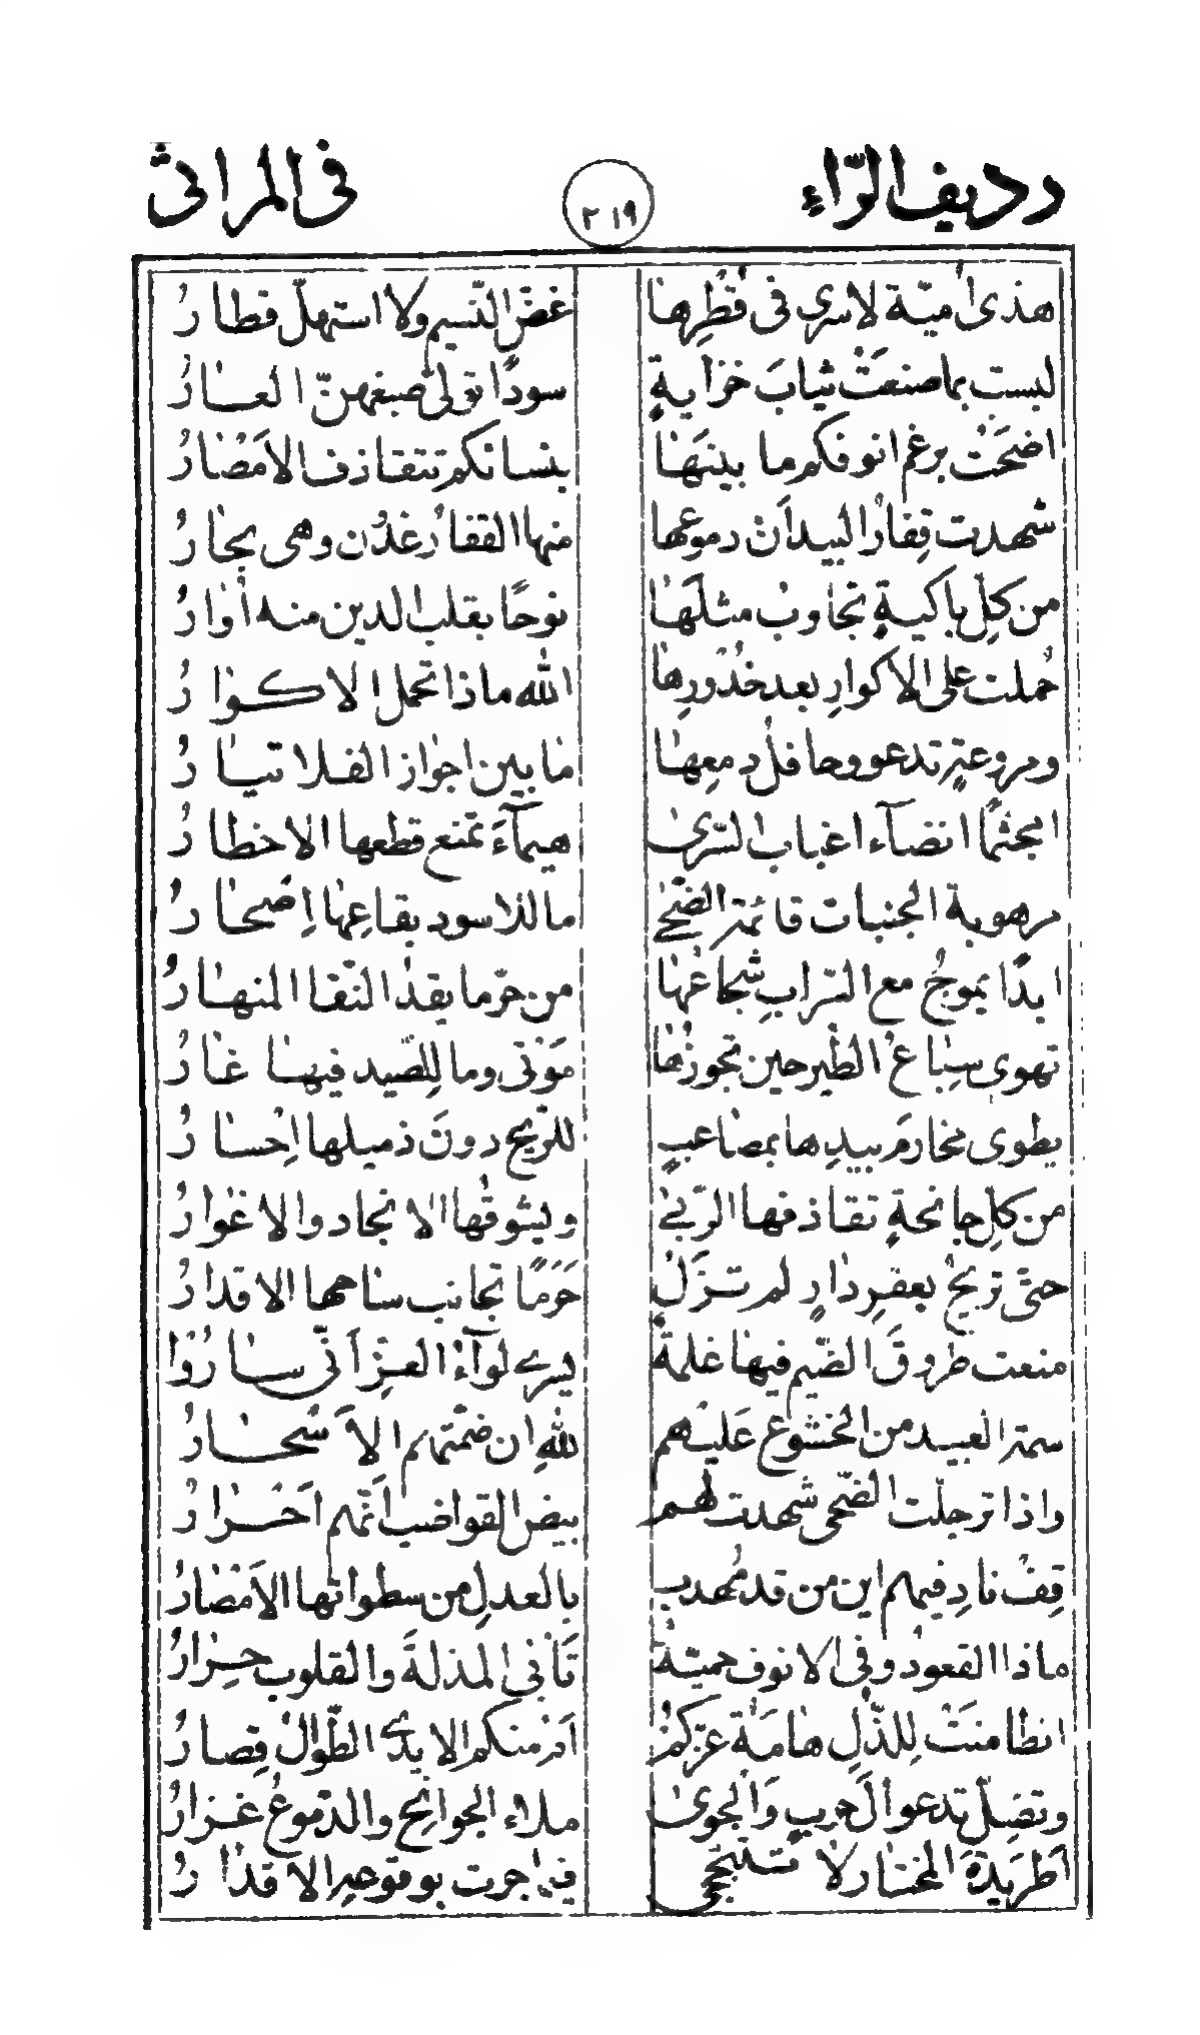 رديف الرّاءِ ٢١٩ في المراثي
هذى اُميّة لاسرى فى قُطرِها غضّ النّسيم ولا استهلّ قطارُ
لبست بما صنعَتْ ثيابَ خزايةٍ سودًا تولّى صبغهنّ العارُ
اضحَتْ برغم انوفكم ما بينَها بنسائكم تتقاذف الاَمصارُ
شهدت قِفارُ البيد اَنّ دموعها منها القفارُ غدُن وهى بحارُ
من كلِّ باكيةٍ تجاوبُ مثلَها نوحًا بقلب الدين منه اُوارُ
حُملت على الاكوارِ بعد خدُورِها الله ماذا تحمل الاكوارُ
ومروعةٍ تدعو وحافلُ دمعِها ما بين اجواز الفلا تيّارُ
امجثمًا انضآء اغباب السّرى هيمآءَ تمنع قطعها الاخطارُ
مرهوبة الجنبات قائمة الضّحى ما للاسود بقاعِها اِصحارُ
ابدًا يموجُ مع السّرابِ شجاعُها من حرّما يقدُ النّقا المنهارُ
تهوى سِباعُ الطّير حين تجوزُها مَوْتى وما لِلصّيد فيها غارُ
يطوى مخارمَ بيدِها بمصاعبٍ للرّيح دونَ ذميلها اِحسارُ
من كلِّ جانحةٍ تقاذفها الرّبى ويشوقُها الانجاد والاغوارُ
حتّى تريحُ بعقرِ دارٍ لم تزَلْ حَرَمًا تجانب ساحها الاقدارُ
منعت طروقَ الضّيم فيها غلمةٌ يسرى لوآءُ العزِّ اَنّى ساروُا
سمة العبيد من الخشوع عَليهم للّهِ ان ضمّتهم الاَسحارُ
واذا ترجلّت الضّحى شهدت لهم بيض القواضب اَنّهم اَحرارُ
قِفْ نادِ فيهم اين من قد مُهدت بالعدلِ من سطواتها الاَمصارُ
ماذا القعودُ وفى الانوف حميّةٌ تَأبى المذلةَ والقلوب حِرارُ
اتطامنَتْ لِلذُّلِ هامَة عزِّكمْ اَمْ منكم الايدى الطّوالُ قِصارُ
وتضِلّ تدعو آلَ حربٍ وَالجوى ملاء الجوانح والدّموعُ غزارُ
اَطريَدةَ المختار لا تتبجّحى فيما جرت بوقوعه الاقدارُ